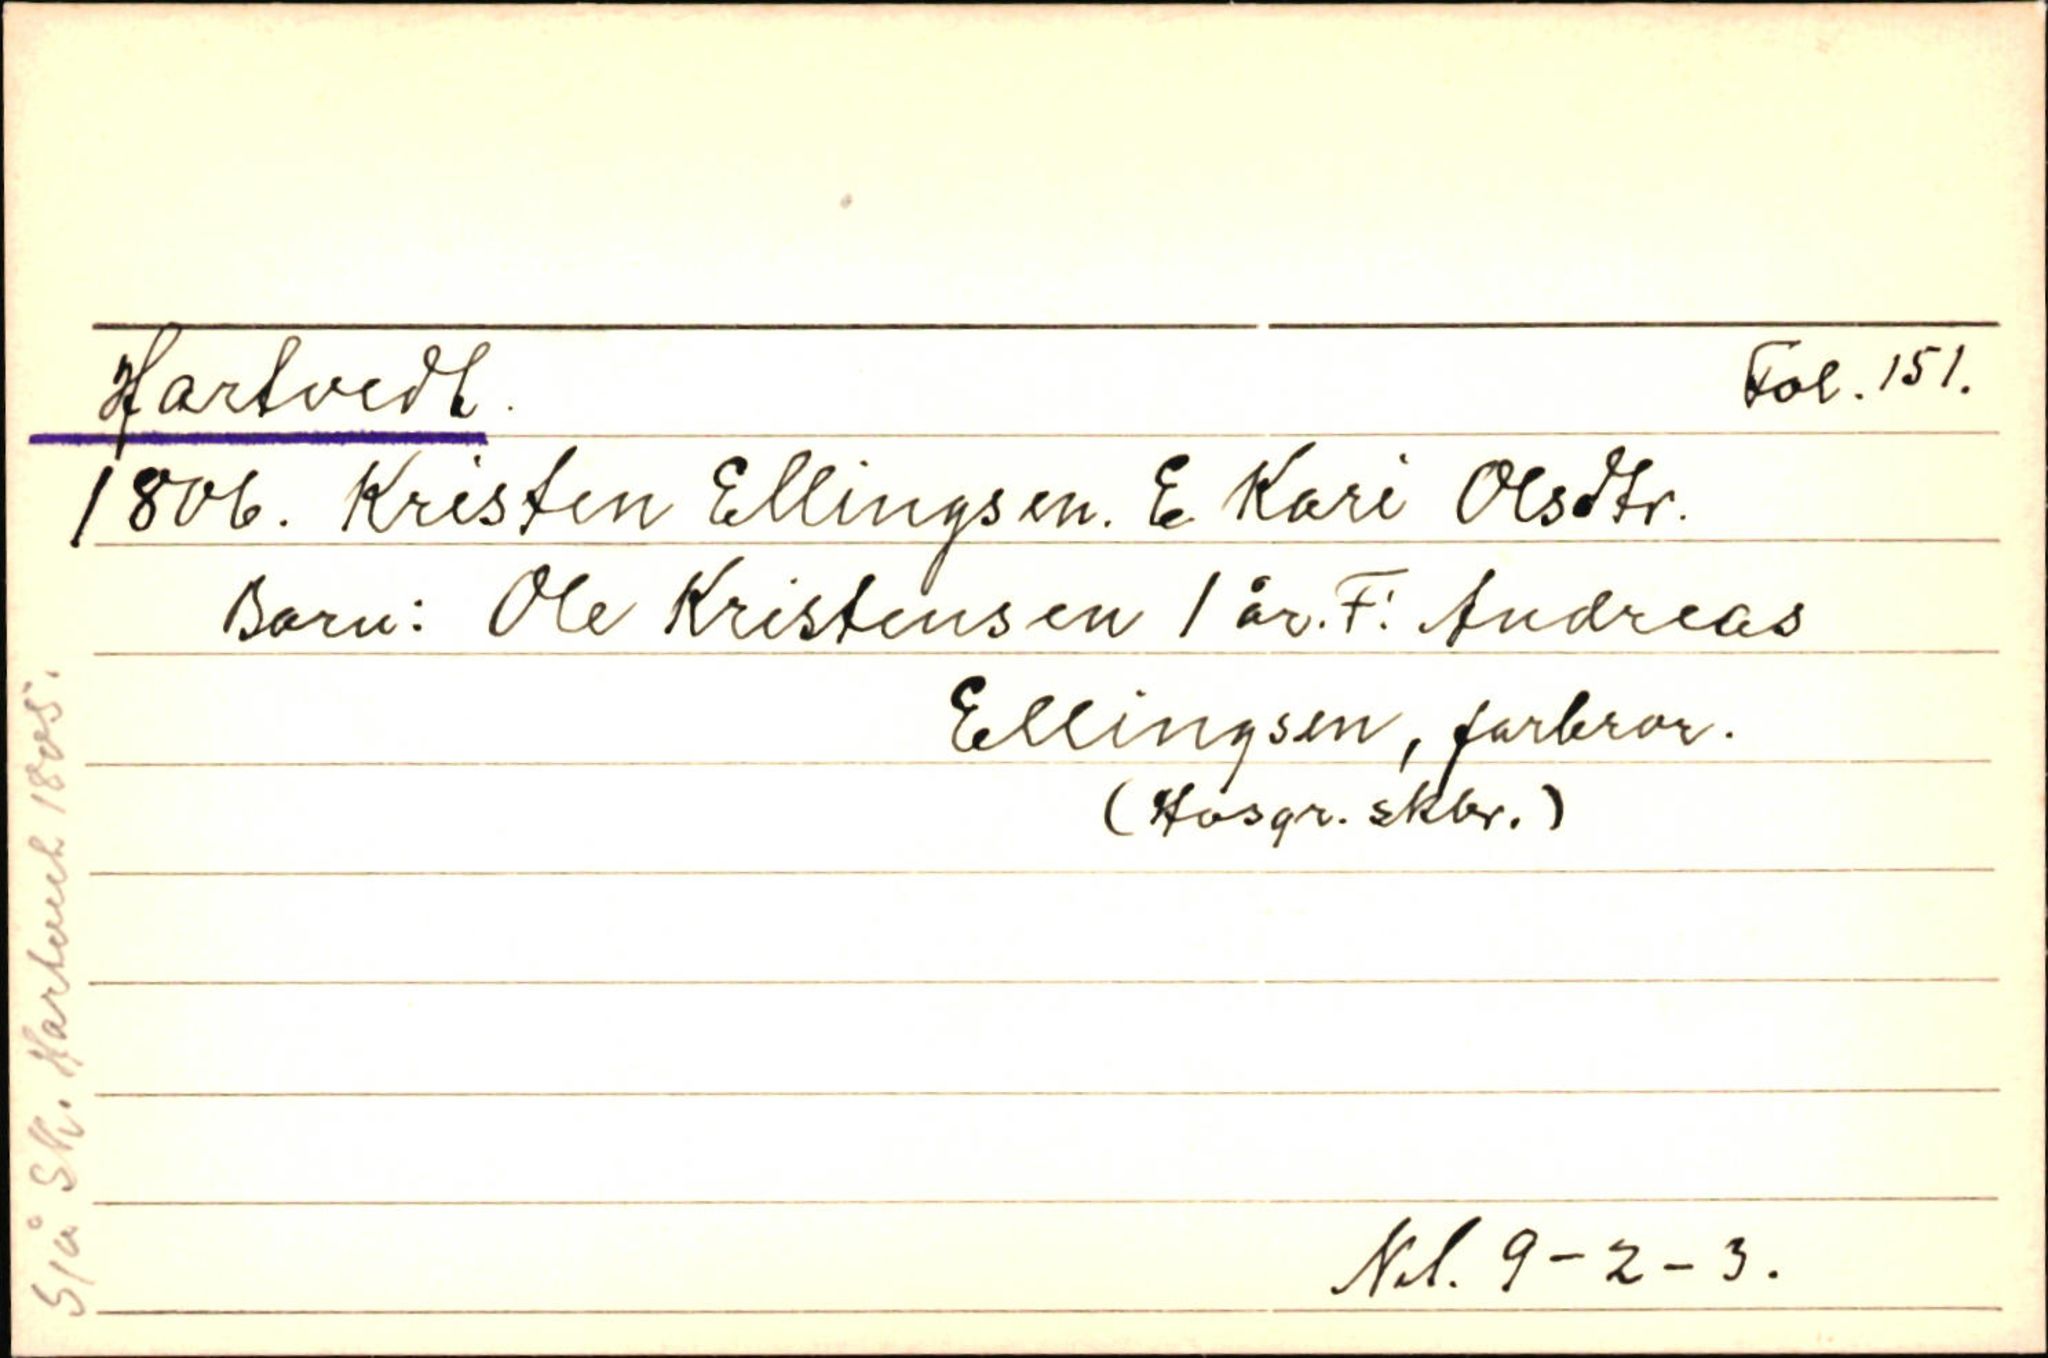 Hartvedt. Fol. 151.
1806. Kristen Ellingsen. E Kari Olsdtr.
Born: Ole Kristensen 1 år. F: Andreas
Ellingsen, farbror.
(Hosgr. skbr.)
Nl. 9-2-3.
Sjå Sk. Hartvedt 1805.